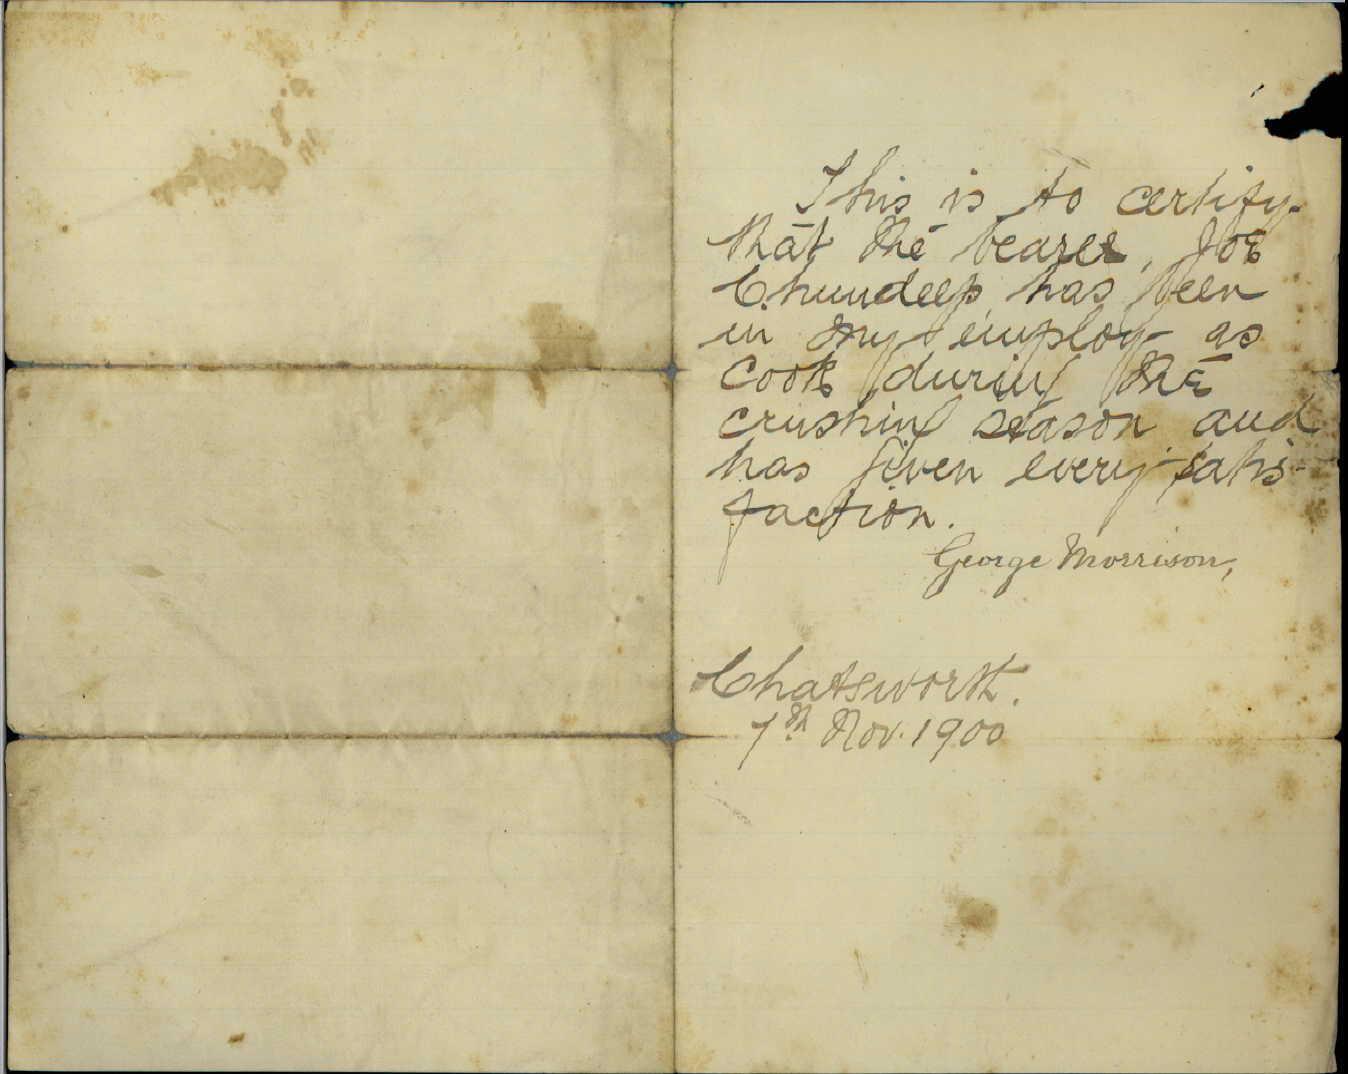 This is to certify
that the bearer, Joe
Chundeep has been
in my employ as
Cook during the
crushing season and
has given every satis-
faction.
George Morrison,
Chatsworth.
7th Nov. 1900